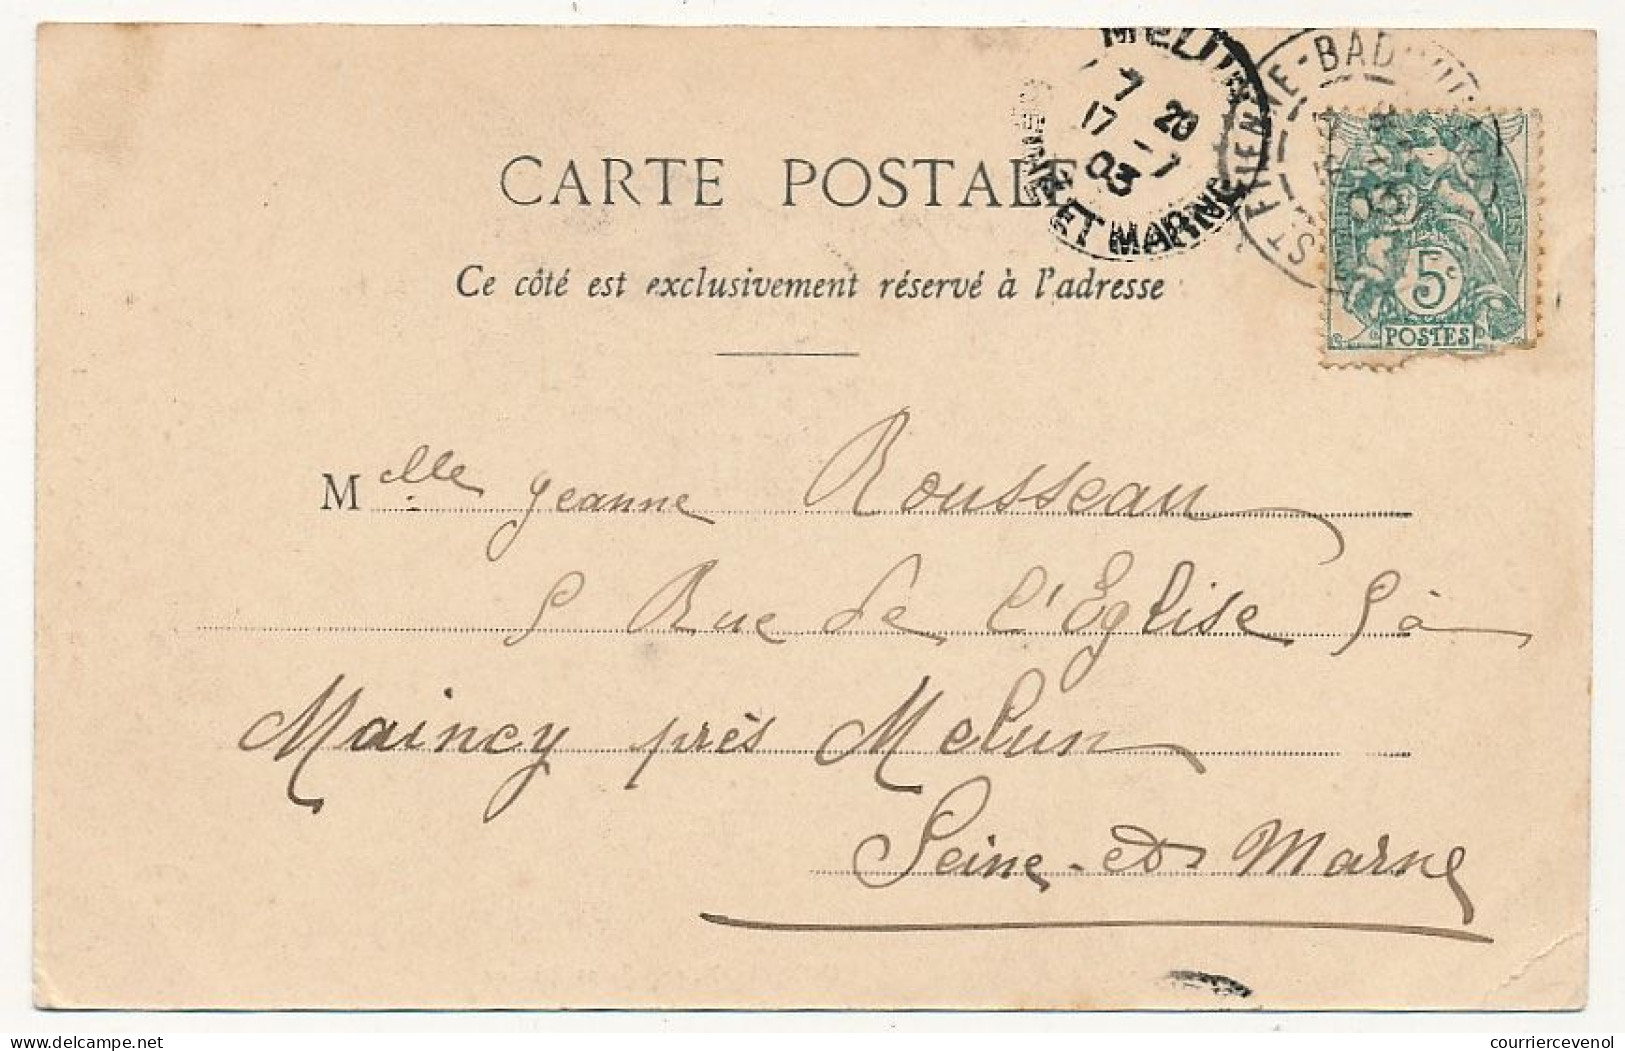 MELUN
7 20
17 - 7
03
ET MARNE
ST ETIENNE-BAD
03
CARTE POSTALE
Ce côté est exclusivement réservé à l'adresse
5c
POSTES
Melle Jeanne Rousseau
5 Rue de l'Eglise 5 à
Maincy près Melun
Seine-et-Marne
www.courriercevenol.com